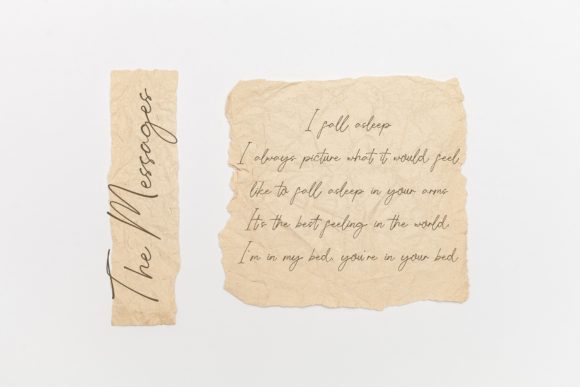 The Messages
I fall asleep
I always picture what it would feel
like to fall asleep in your arms
It's the best feeling in the world.
I'm in my bed, you're in your bed